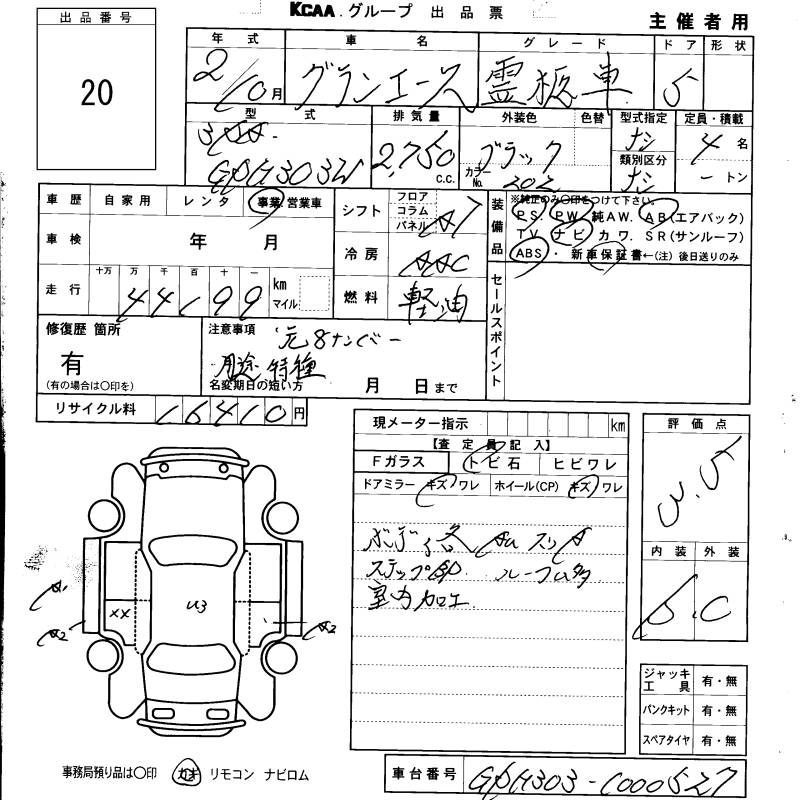 KCAA グループ 出品票
主催者用
出品番号
20
年式 車名 グレード ドア 形状
2/10月 グランエース 霊柩車 5
型式 排気量 外装色 色替 型式指定 定員・積載
GDH303W 2,750 c.c. ブラック ナシ 4名
カラーNo. 202 類別区分 ナシ ー トン
車歴 自家用 レンタ 事業・営業車
シフト フロア コラム パネル AT
装備品
※純正のみ○印をつけて下さい。
PS PW 純AW. AB(エアバック)
TV ナビ カワ. SR(サンルーフ)
ABS ・ 新車保証書←(注)後日送りのみ
車検 年 月
冷房 AAC
走行 十万 万 千 百 十 一 km マイル
44199
燃料 軽油
セールスポイント
修復歴 箇所
有
(有の場合は○印を)
注意事項 元8ナンバー
用途 特種
名変期日の短い方 月 日まで
リサイクル料 16410円
現メーター指示 km
【査定員記入】
Fガラス トビ石 ヒビワレ
ドアミラー キズワレ ホイール(CP) キズワレ
ボディ各 AU スリA
ステップ部 ルーフU多
室内加工
評価点
3.5
内装 外装
B C
A1
A2
XX
U3
A2
ジャッキ工具 有・無
パンクキット 有・無
スペアタイヤ 有・無
事務局預り品は○印 カギ リモコン ナビロム
車台番号 GDH303-1000527